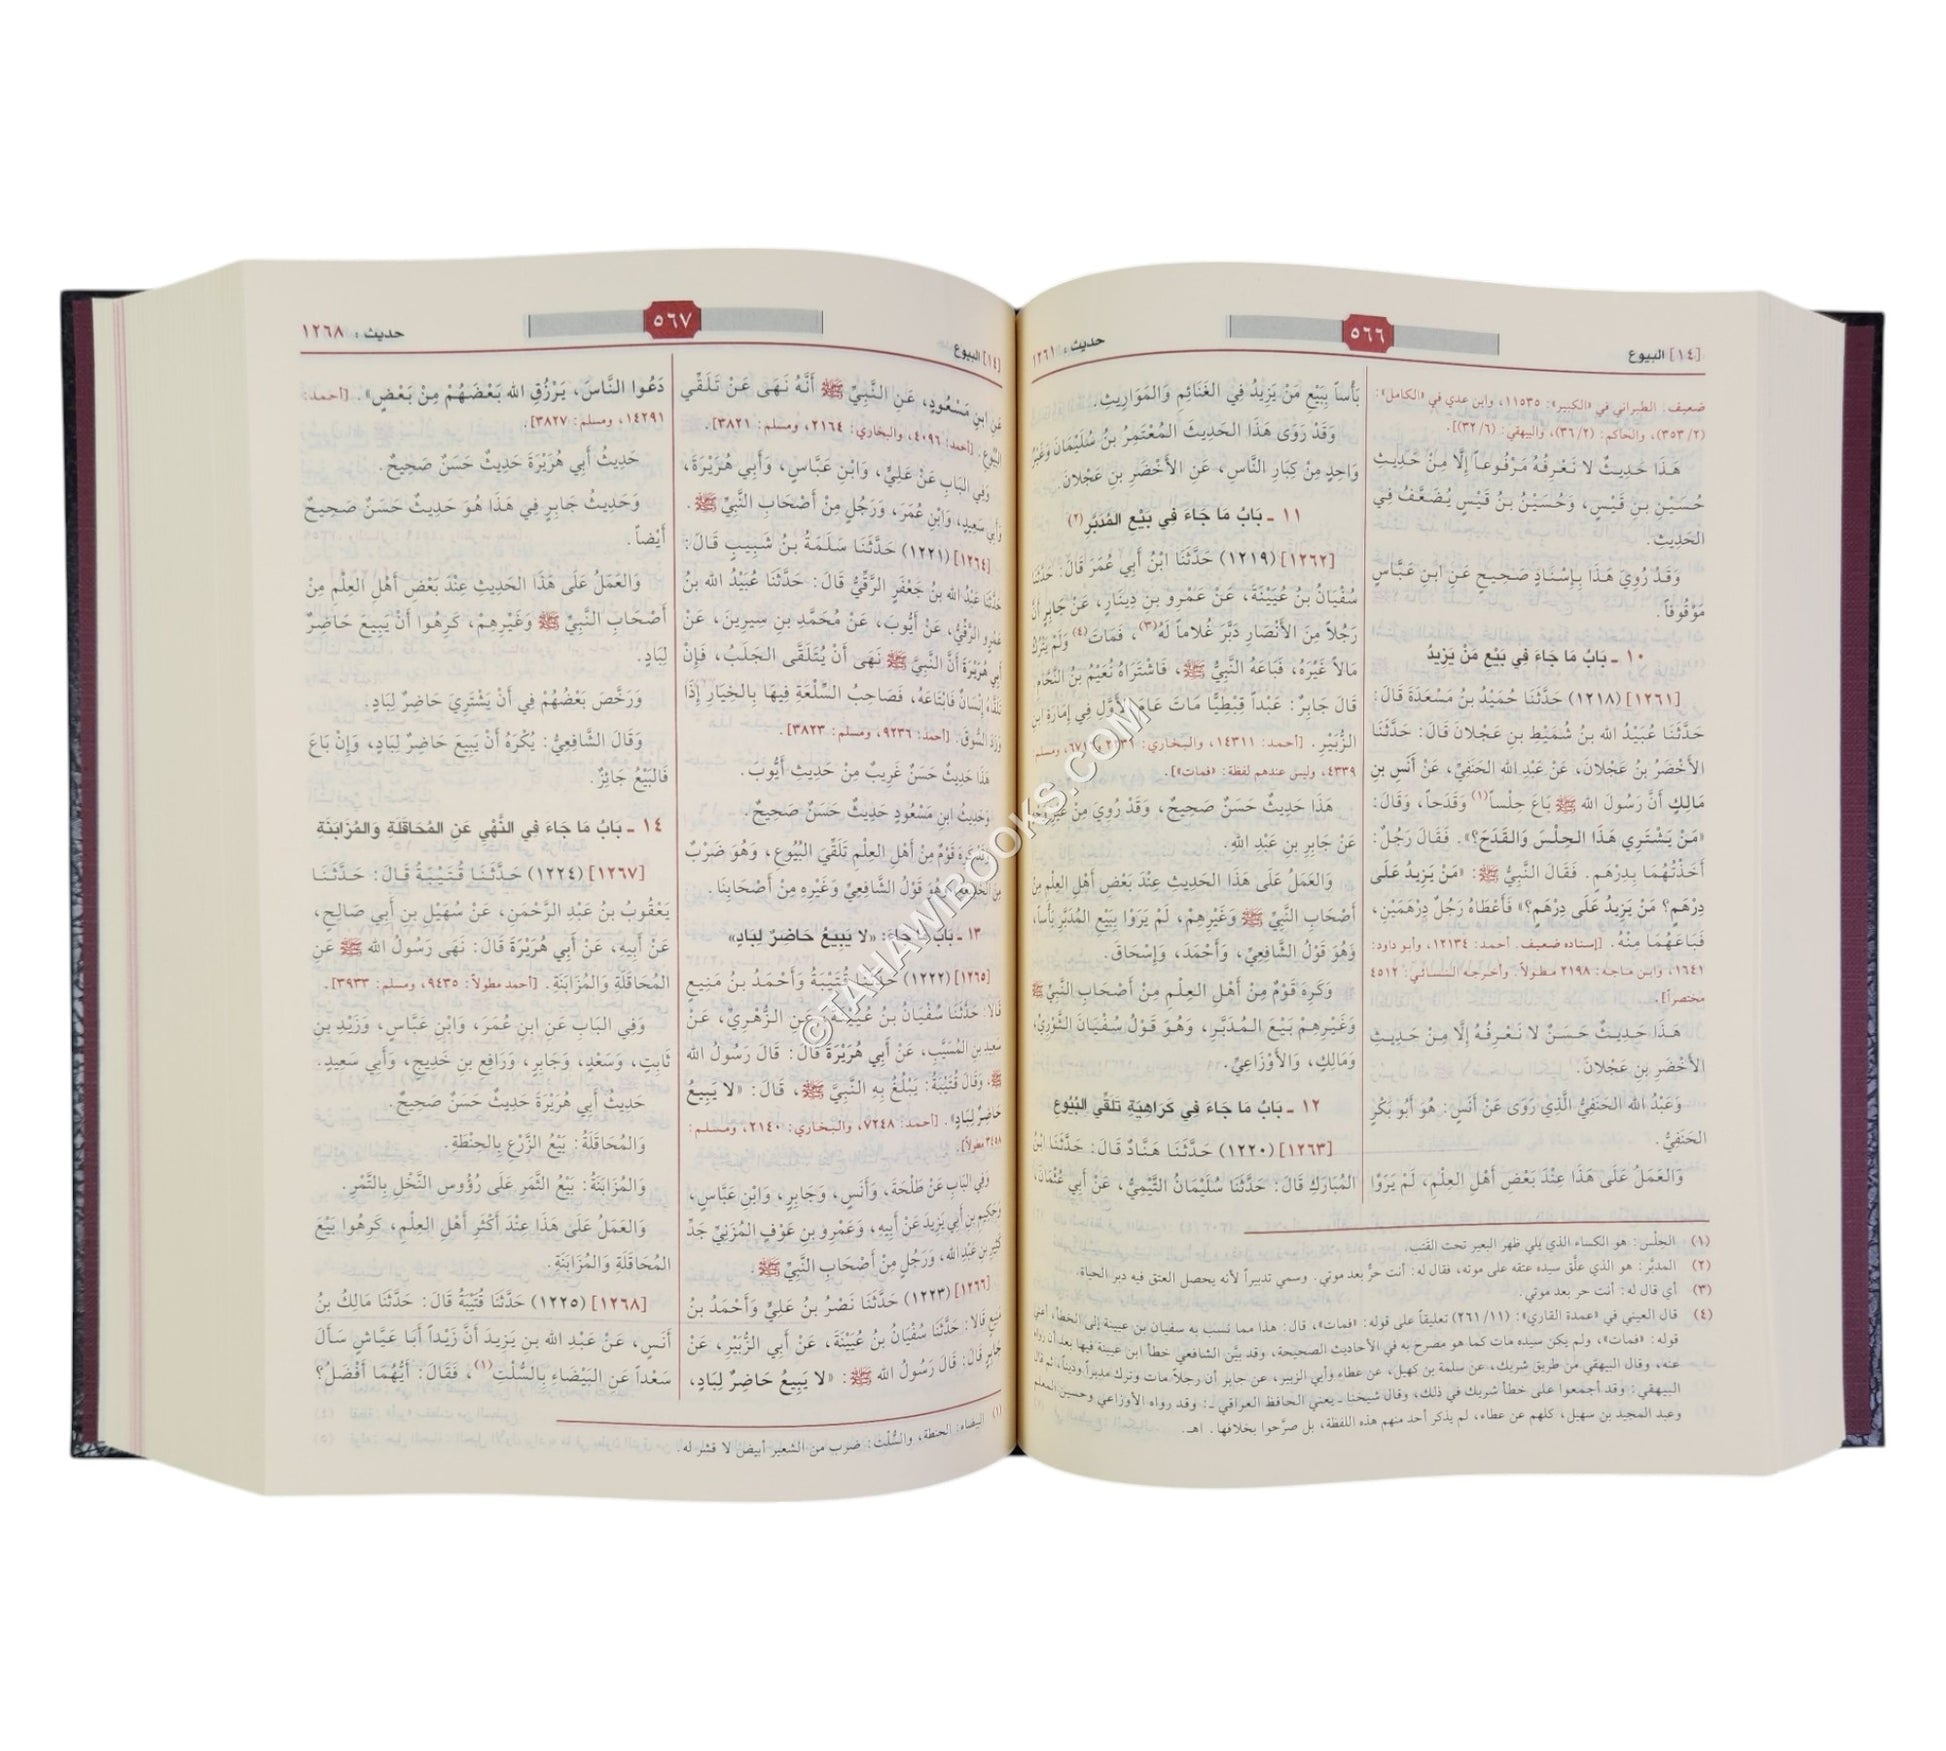 [١٤] البيوع
٥٦٦
حديث: ١٢٦١
ضعيف. الطبراني في «الكبير»: ١١٥٣٥، وابن عدي في «الكامل»:
(٣٥٣/٢)، والحاكم: (٣٦/٢)، والبيهقي: (٣٢/٦)].
هَذَا حَدِيثٌ لا نَعْرِفُهُ مَرْفُوعاً إِلَّا مِنْ حَدِيثِ
حُسَيْنِ بنِ قَيْسٍ، وَحُسَيْنُ بنُ قَيْسٍ يُضَعَّفُ فِي
الحَدِيثِ.
وَقَدْ رُوِيَ هَذَا بِإِسْنَادٍ صَحِيحٍ عَنِ ابنِ عَبَّاسٍ
مَوْقُوفاً.
١٠ ـ بَابُ مَا جَاءَ فِي بَيْعِ مَنْ يَزِيدُ
[١٢٦١] (١٢١٨) حَدَّثَنَا حُمَيْدُ بنُ مَسْعَدَةَ قَالَ:
حَدَّثَنَا عُبَيْدُ الله بنُ شُمَيْطِ بنِ عَجْلَانَ قَالَ: حَدَّثَنَا
الأَخْضَرُ بنُ عَجْلَانَ، عَنْ عَبْدِ الله الحَنَفِيِّ، عَنْ أَنَسِ بنِ
مَالِكٍ أَنَّ رَسُولَ الله ﷺ بَاعَ حِلْساً(١) وَقَدَحاً، وَقَالَ:
«مَنْ يَشْتَرِي هَذَا الحِلْسَ وَالقَدَحَ؟». فَقَالَ رَجُلٌ:
أَخَذْتُهُمَا بِدِرْهَمٍ. فَقَالَ النَّبِيُّ ﷺ: «مَنْ يَزِيدُ عَلَى
دِرْهَمٍ؟ مَنْ يَزِيدُ عَلَى دِرْهَمٍ؟» فَأَعْطَاهُ رَجُلٌ دِرْهَمَيْنِ،
فَبَاعَهُمَا مِنْهُ. [إسناده ضعيف. أحمد: ١٢١٣٤، وأبو داود:
١٦٤١، وابن ماجه: ٢١٩٨ مطولاً. وأخرجه النسائي: ٤٥١٢
مختصراً].
هَذَا حَدِيثٌ حَسَنٌ لا نَعْرِفُهُ إِلَّا مِنْ حَدِيثِ
الأَخْضَرِ بنِ عَجْلَانَ.
وَعَبْدُ الله الحَنَفِيُّ الَّذِي رَوَى عَنْ أَنَسٍ: هُوَ أَبُو بَكْرٍ
الحَنَفِيُّ.
وَالعَمَلُ عَلَى هَذَا عِنْدَ بَعْضِ أَهْلِ العِلْمِ، لَمْ يَرَوْا
بَأْساً بِبَيْعِ مَنْ يَزِيدُ فِي الغَنَائِمِ وَالمَوَارِيثِ.
وَقَدْ رَوَى هَذَا الحَدِيثَ المُعْتَمِرُ بنُ سُلَيْمَانَ وَغَيْرُ
وَاحِدٍ مِنْ كِبَارِ النَّاسِ، عَنِ الأَخْضَرِ بنِ عَجْلَانَ.
١١ ـ بَابُ مَا جَاءَ فِي بَيْعِ المُدَبَّرِ(٢)
[١٢٦٢] (١٢١٩) حَدَّثَنَا ابْنُ أَبِي عُمَرَ قَالَ: حَدَّثَنَا
سُفْيَانُ بنُ عُيَيْنَةَ، عَنْ عَمْرِو بنِ دِينَارٍ، عَنْ جَابِرٍ أَنَّ
رَجُلاً مِنَ الأَنْصَارِ دَبَّرَ غُلَاماً لَهُ(٣)، فَمَاتَ(٤) وَلَمْ يَتْرُكْ
مَالاً غَيْرَهُ، فَبَاعَهُ النَّبِيُّ ﷺ، فَاشْتَرَاهُ نُعَيْمُ بنُ النَّحَّامِ.
قَالَ جَابِرٌ: عَبْداً قِبْطِيًّا مَاتَ عَامَ الأَوَّلِ فِي إِمَارَةِ ابنِ
الزُّبَيْرِ. [أحمد: ١٤٣١١، والبخاري: ٢١٣١ و، ومسلم
٤٣٣٩، وليس عندهم لفظة: «فمات»].
هَذَا حَدِيثٌ حَسَنٌ صَحِيحٌ، وَقَدْ رُوِيَ مِنْ غَيْرِ وَجْهٍ
عَنْ جَابِرِ بنِ عَبْدِ الله.
وَالعَمَلُ عَلَى هَذَا الحَدِيثِ عِنْدَ بَعْضِ أَهْلِ العِلْمِ مِنْ
أَصْحَابِ النَّبِيِّ ﷺ وَغَيْرِهِمْ، لَمْ يَرَوْا بِبَيْعِ المُدَبَّرِ بَأْساً،
وَهُوَ قَوْلُ الشَّافِعِيِّ، وَأَحْمَدَ، وَإِسْحَاقَ.
وَكَرِهَ قَوْمٌ مِنْ أَهْلِ العِلْمِ مِنْ أَصْحَابِ النَّبِيِّ ﷺ
وَغَيْرِهِمْ بَيْعَ المُدَبَّرِ، وَهُوَ قَوْلُ سُفْيَانَ الثَّوْرِيِّ،
وَمَالِكٍ، وَالأَوْزَاعِيِّ.
١٢ ـ بَابُ مَا جَاءَ فِي كَرَاهِيَةِ تَلَقِّي البُيُوعِ
[١٢٦٣] (١٢٢٠) حَدَّثَنَا هَنَّادٌ قَالَ: حَدَّثَنَا ابْنُ
المُبَارَكِ قَالَ: حَدَّثَنَا سُلَيْمَانُ التَّيْمِيُّ، عَنْ أَبِي عُثْمَانَ،
(١) الحِلْس: هو الكساء الذي يلي ظهر البعير تحت القتب.
(٢) المدبَّر: هو الذي علَّق سيده عتقه على موته، فقال له: أنت حرٌّ بعد موتي. وسمي تدبيراً لأنه يحصل العتق فيه دبر الحياة.
(٣) أي قال له: أنت حر بعد موتي.
(٤) قال العيني في «عمدة القاري»: (٢٦١/١١) تعليقاً على قوله: «فمات»، قال: هذا مما نسب به سفيان بن عيينة إلى الخطأ، أعني
قوله: «فمات»، ولم يكن سيده مات كما هو مصرح به في الأحاديث الصحيحة، وقد بيَّن الشافعي خطأ ابن عيينة فيها بعد أن رواه
عنه، وقال البيهقي من طريق شريك، عن سلمة بن كهيل، عن عطاء وأبي الزبير، عن جابر أن رجلاً مات وترك مدبراً وديناً، ثم قال
البيهقي: وقد أجمعوا على خطأ شريك في ذلك، وقال شيخنا ـ يعني الحافظ العراقي ـ: وقد رواه الأوزاعي وحسين المعلم
وعبد المجيد بن سهيل، كلهم عن عطاء، لم يذكر أحد منهم هذه اللفظة، بل صرَّحوا بخلافها. اهـ.
[١٤] البيوع
٥٦٧
حديث: ١٢٦٨
عَنِ ابنِ مَسْعُودٍ، عَنِ النَّبِيِّ ﷺ أَنَّهُ نَهَى عَنْ تَلَقِّي
البُيُوعِ. [أحمد: ٤٠٩٦، والبخاري: ٢١٦٤، ومسلم: ٣٨٢١].
وَفِي البَابِ عَنْ عَلِيٍّ، وَابْنِ عَبَّاسٍ، وَأَبِي هُرَيْرَةَ،
وَأَبِي سَعِيدٍ، وَابْنِ عُمَرَ، وَرَجُلٍ مِنْ أَصْحَابِ النَّبِيِّ ﷺ.
[١٢٦٤] (١٢٢١) حَدَّثَنَا سَلَمَةُ بنُ شَبِيبٍ قَالَ:
حَدَّثَنَا عَبْدُ الله بنُ جَعْفَرٍ الرَّقِّيُّ قَالَ: حَدَّثَنَا عُبَيْدُ الله بنُ
عَمْرٍو الرَّقِّيُّ، عَنْ أَيُّوبَ، عَنْ مُحَمَّدِ بنِ سِيرِينَ، عَنْ
أَبِي هُرَيْرَةَ أَنَّ النَّبِيَّ ﷺ نَهَى أَنْ يُتَلَقَّى الجَلَبُ، فَإِنْ
تَلَقَّاهُ إِنْسَانٌ فَابْتَاعَهُ، فَصَاحِبُ السِّلْعَةِ فِيهَا بِالخِيَارِ إِذَا
وَرَدَ السُّوقَ. [أحمد: ٩٢٣٦، ومسلم: ٣٨٢٣].
هَذَا حَدِيثٌ حَسَنٌ غَرِيبٌ مِنْ حَدِيثِ أَيُّوبَ.
وَحَدِيثُ ابنِ مَسْعُودٍ حَدِيثٌ حَسَنٌ صَحِيحٌ.
وَقَدْ كَرِهَ قَوْمٌ مِنْ أَهْلِ العِلْمِ تَلَقِّيَ البُيُوعِ، وَهُوَ ضَرْبٌ
مِنَ الخَدِيعَةِ، وَهُوَ قَوْلُ الشَّافِعِيِّ وَغَيْرِهِ مِنْ أَصْحَابِنَا.
١٣ ـ بَابُ مَا جَاءَ: «لا يَبِيعُ حَاضِرٌ لِبَادٍ»
[١٢٦٥] (١٢٢٢) حَدَّثَنَا قُتَيْبَةُ وَأَحْمَدُ بنُ مَنِيعٍ
قَالَا: حَدَّثَنَا سُفْيَانُ بنُ عُيَيْنَةَ، عَنِ الزُّهْرِيِّ، عَنْ
سَعِيدِ بنِ المُسَيَّبِ، عَنْ أَبِي هُرَيْرَةَ قَالَ: قَالَ رَسُولُ الله
ﷺ، وَقَالَ قُتَيْبَةُ: يَبْلُغُ بِهِ النَّبِيَّ ﷺ، قَالَ: «لا يَبِيعُ
حَاضِرٌ لِبَادٍ». [أحمد: ٧٢٤٨، والبخاري: ٢١٤٠، ومسلم:
٣٤٥٨ مطولاً].
وَفِي البَابِ عَنْ طَلْحَةَ، وَأَنَسٍ، وَجَابِرٍ، وَابْنِ عَبَّاسٍ،
وَحَكِيمِ بنِ أَبِي يَزِيدَ عَنْ أَبِيهِ، وَعَمْرِو بنِ عَوْفٍ المُزَنِيِّ جَدِّ
كَثِيرِ بنِ عَبْدِ الله، وَرَجُلٍ مِنْ أَصْحَابِ النَّبِيِّ ﷺ.
[١٢٦٦] (١٢٢٣) حَدَّثَنَا نَصْرُ بنُ عَلِيٍّ وَأَحْمَدُ بنُ
مَنِيعٍ قَالَا: حَدَّثَنَا سُفْيَانُ بنُ عُيَيْنَةَ، عَنْ أَبِي الزُّبَيْرِ، عَنْ
جَابِرٍ قَالَ: قَالَ رَسُولُ الله ﷺ: «لا يَبِيعُ حَاضِرٌ لِبَادٍ،
دَعُوا النَّاسَ، يَرْزُقِ الله بَعْضَهُمْ مِنْ بَعْضٍ». [أحمد:
١٤٢٩١، ومسلم: ٣٨٢٧].
حَدِيثُ أَبِي هُرَيْرَةَ حَدِيثٌ حَسَنٌ صَحِيحٌ.
وَحَدِيثُ جَابِرٍ فِي هَذَا هُوَ حَدِيثٌ حَسَنٌ صَحِيحٌ
أَيْضاً.
وَالعَمَلُ عَلَى هَذَا الحَدِيثِ عِنْدَ بَعْضِ أَهْلِ العِلْمِ مِنْ
أَصْحَابِ النَّبِيِّ ﷺ وَغَيْرِهِمْ، كَرِهُوا أَنْ يَبِيعَ حَاضِرٌ
لِبَادٍ.
وَرَخَّصَ بَعْضُهُمْ فِي أَنْ يَشْتَرِيَ حَاضِرٌ لِبَادٍ.
وَقَالَ الشَّافِعِيُّ: يُكْرَهُ أَنْ يَبِيعَ حَاضِرٌ لِبَادٍ، وَإِنْ بَاعَ
فَالبَيْعُ جَائِزٌ.
١٤ ـ بَابُ مَا جَاءَ فِي النَّهْيِ عَنِ المُحَاقَلَةِ وَالمُزَابَنَةِ
[١٢٦٧] (١٢٢٤) حَدَّثَنَا قُتَيْبَةُ قَالَ: حَدَّثَنَا
يَعْقُوبُ بنُ عَبْدِ الرَّحْمَنِ، عَنْ سُهَيْلِ بنِ أَبِي صَالِحٍ،
عَنْ أَبِيهِ، عَنْ أَبِي هُرَيْرَةَ قَالَ: نَهَى رَسُولُ الله ﷺ عَنِ
المُحَاقَلَةِ وَالمُزَابَنَةِ. [أحمد مطولاً: ٩٤٣٥، ومسلم: ٣٩٣٣].
وَفِي البَابِ عَنِ ابنِ عُمَرَ، وَابْنِ عَبَّاسٍ، وَزَيْدِ بنِ
ثَابِتٍ، وَسَعْدٍ، وَجَابِرٍ، وَرَافِعِ بن خَدِيجٍ، وَأَبِي سَعِيدٍ.
حَدِيثُ أَبِي هُرَيْرَةَ حَدِيثٌ حَسَنٌ صَحِيحٌ.
وَالمُحَاقَلَةُ: بَيْعُ الزَّرْعِ بِالحِنْطَةِ.
وَالمُزَابَنَةُ: بَيْعُ الثَّمَرِ عَلَى رُؤُوسِ النَّخْلِ بِالتَّمْرِ.
وَالعَمَلُ عَلَى هَذَا عِنْدَ أَكْثَرِ أَهْلِ العِلْمِ، كَرِهُوا بَيْعَ
المُحَاقَلَةِ وَالمُزَابَنَةِ.
[١٢٦٨] (١٢٢٥) حَدَّثَنَا قُتَيْبَةُ قَالَ: حَدَّثَنَا مَالِكُ بنُ
أَنَسٍ، عَنْ عَبْدِ الله بنِ يَزِيدَ أَنَّ زَيْداً أَبَا عَيَّاشٍ سَأَلَ
سَعْداً عَنِ البَيْضَاءِ بِالسُّلْتِ(١)، فَقَالَ: أَيُّهُمَا أَفْضَلُ؟
(١) البيضاء: الحنطة، والسُّلْت: ضرب من الشعير أبيض لا قشر له.
©TAHAWIBOOKS.COM